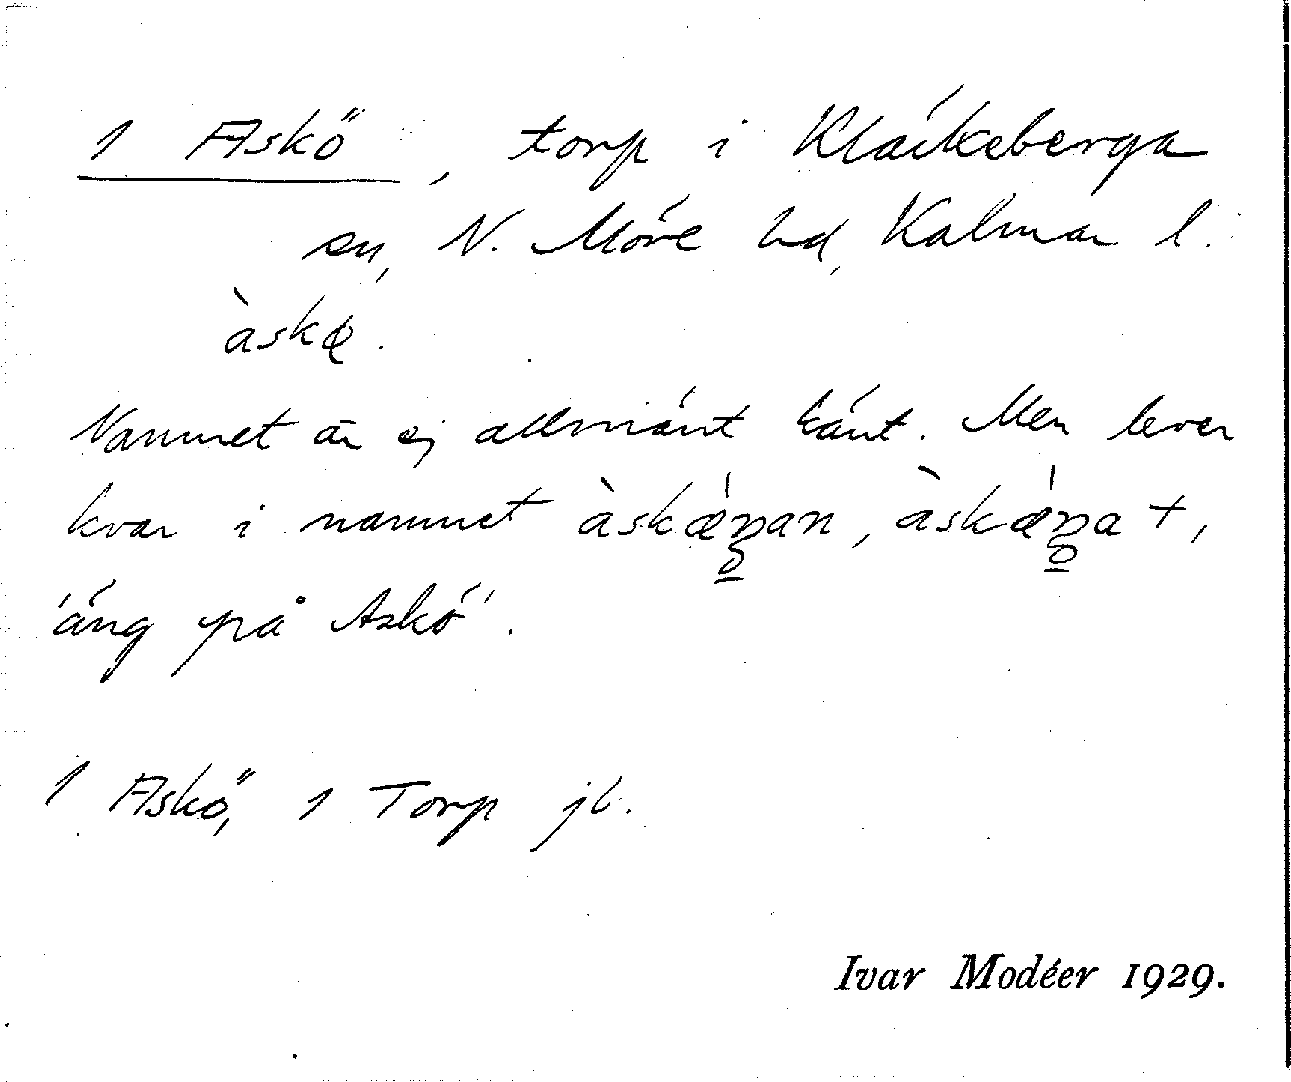 1 Askö, torp i Kläckeberga
sn, N. Möre hd, Kalmar l.
àskœ.
Namnet är ej allmänt känt. Men lever
kvar i namnet
'äng på Askö'.
1 Askö, 1 Torp jb.
Ivar Modéer 1929.